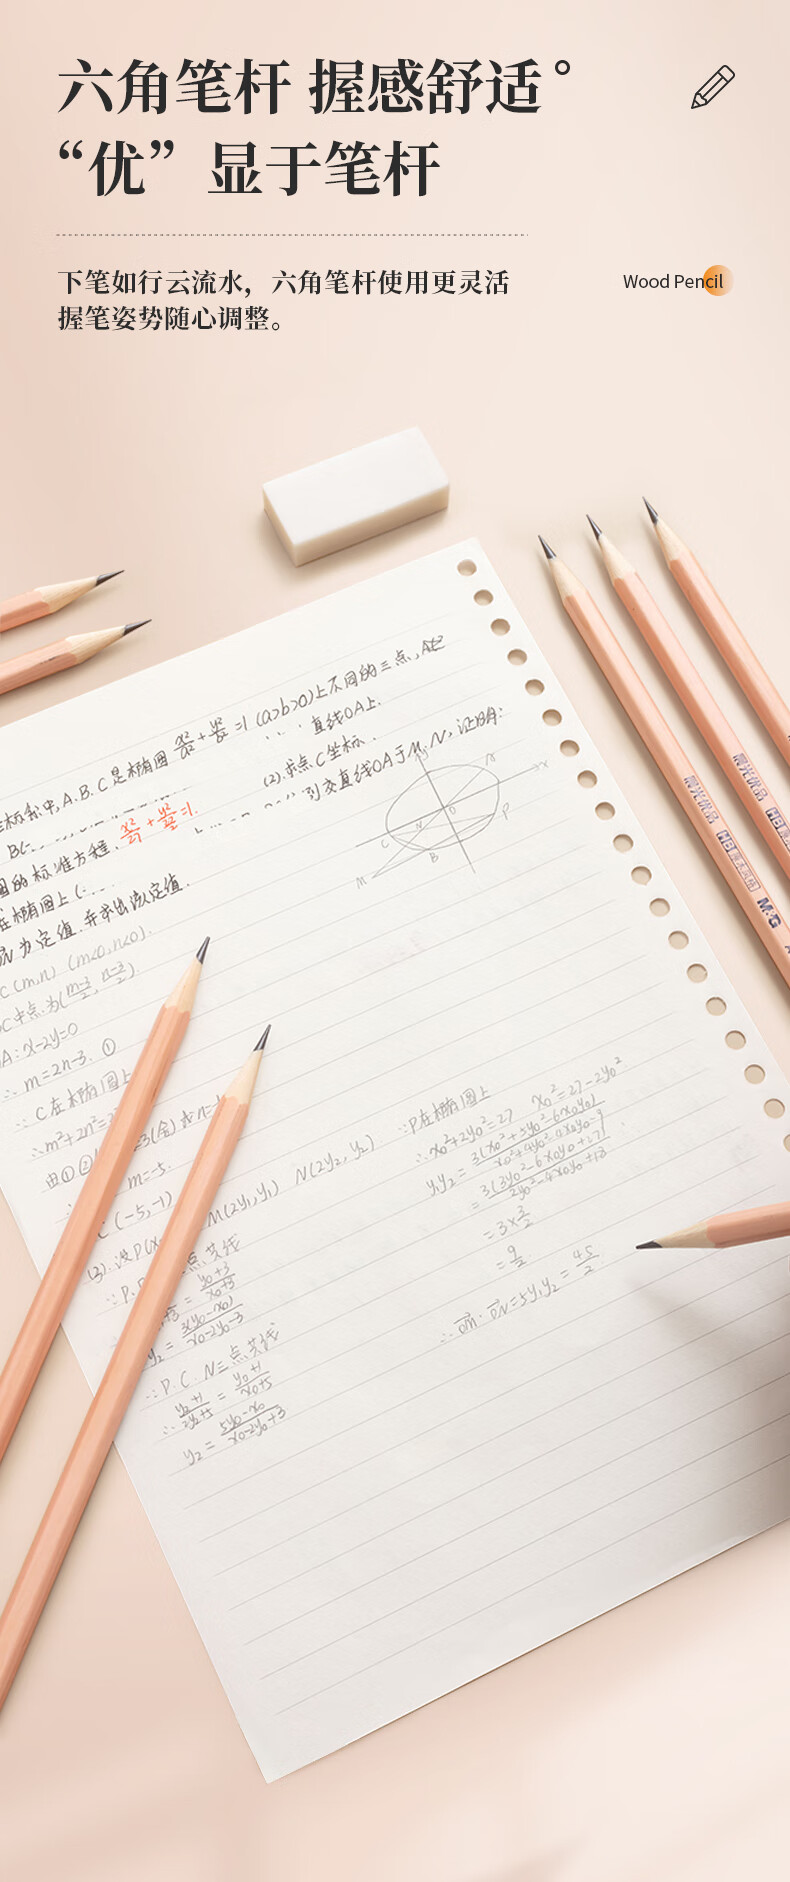 六角笔杆 握感舒适°
“优”显于笔杆
下笔如行云流水，六角笔杆使用更灵活
握笔姿势随心调整。
Wood Pencil
晨光优品 HB
晨光优品 HB 原木风格 M&G
中,A.B.C是椭圆 x²/a² + y²/b² =1 (a>b>0)上不同的三点,
直线OA上.
(2).求点C坐标.
交直线OA于M,N,证明:
的标准方程. x²/27 + y²/ =1.
在椭圆上
为定值.并求出该定值.
C(m,n) (m<0,n<0).
中点为(m-3/2, n-3/2)
A:x-2y=0
∴ m=2n-3. ①
∵ C在椭圆上
∴m²+2n²=2
由①②
m=-5.
(-5,-1)
(3).设P(x
M(2y₁,y₁) N(2y₂,y₂)
点共线
= y₀+3/x₀+3
y₂ = 3(y₀-x₀)/x₀-2y₀-3
∵P.C.N三点共线
∴ y₂+1/2y₂+5 = y₀+1/x₀+5
y₂ = 5y₀-x₀/x₀-2y₀+3
∵P在椭圆上
∴x₀²+2y₀²=27 x₀²=27-2y₀²
y₁y₂ = 3(x₀²+5y₀²-6x₀y₀)/x₀²+4y₀²-4x₀y₀-9
= 3(3y₀²-6x₀y₀+27)/2y₀²-4x₀y₀+18
=3×3/2
=9/2
∴ OM·ON=5y₁y₂ = 45/2
y
x
A
O
P
N
C
B
M